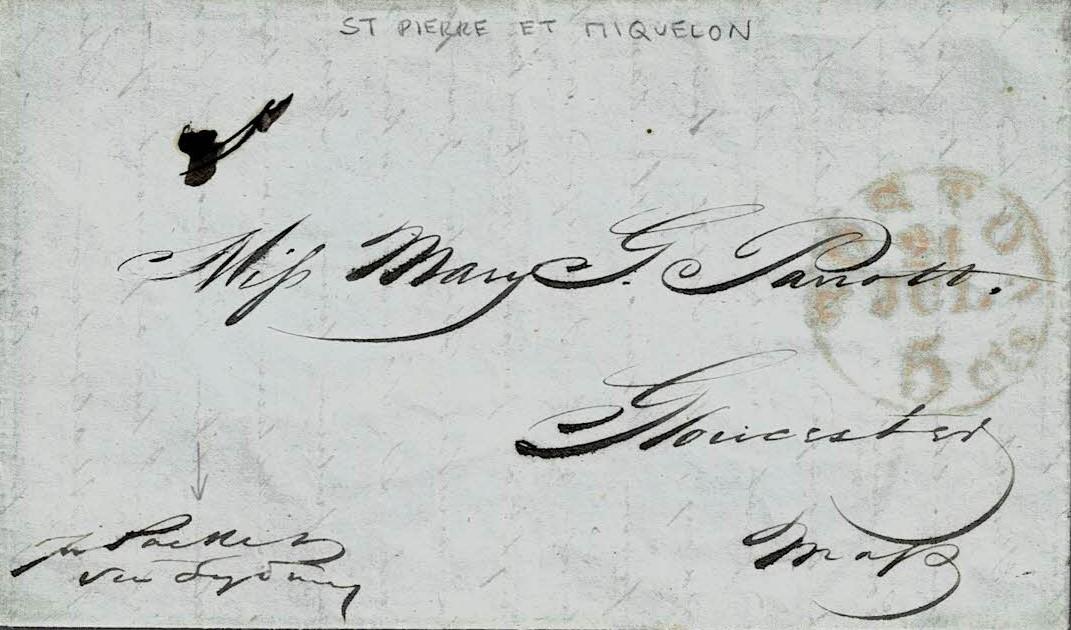 ST PIERRE ET MIQUELON
Miss Mary G. Parrott.
21
JUL
5 cts
Gloucester
Mass
pr Packet
via Sydney